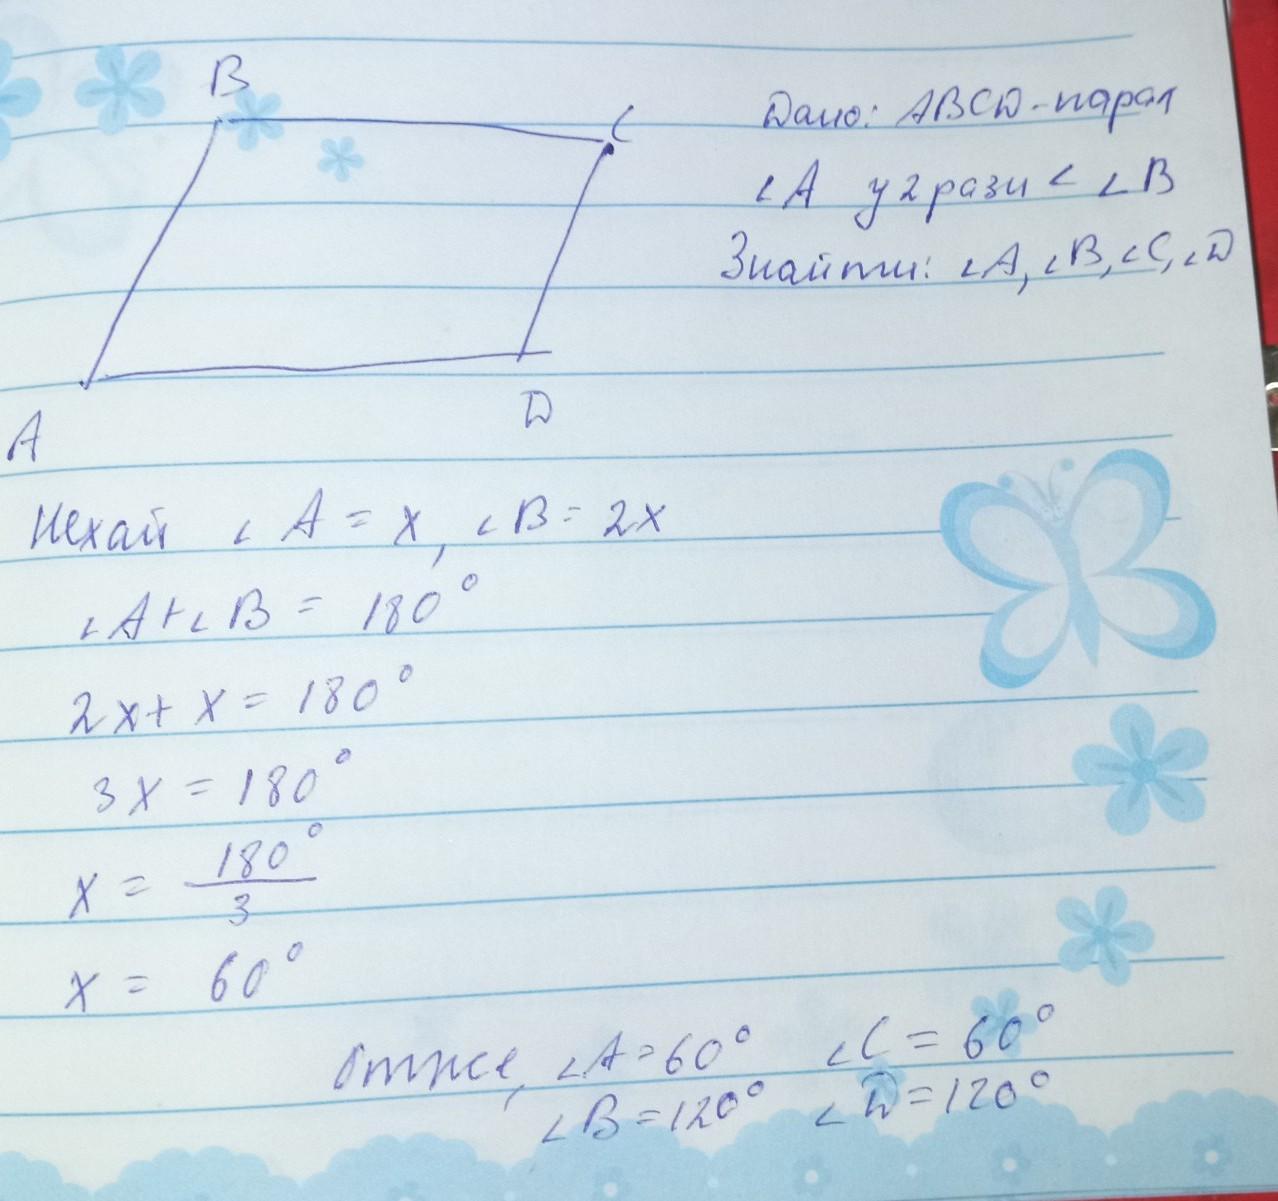 B
C
A
D
Дано: ABCD - парал
∠A у 2 рази < ∠B
Знайти: ∠A, ∠B, ∠C, ∠D
Нехай ∠A = x, ∠B = 2x
∠A+∠B = 180°
2x + x = 180°
3x = 180°
x = 180°/3
x = 60°
Отже, ∠A = 60° ∠C = 60°
∠B = 120° ∠D = 120°